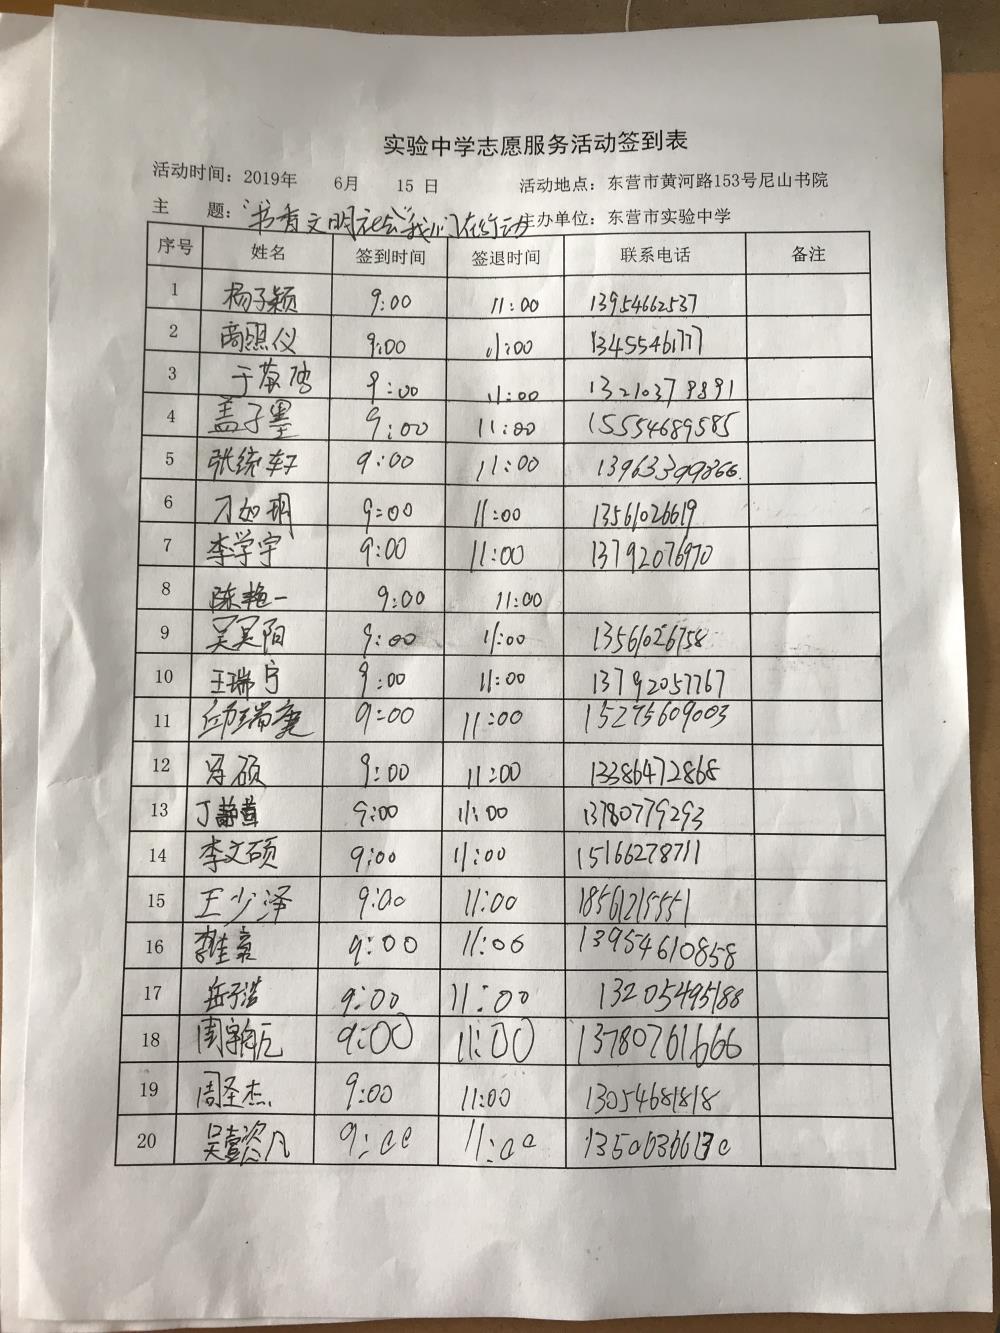 实验中学志愿服务活动签到表
活动时间：2019年 6月 15 日 活动地点：东营市黄河路153号尼山书院
主 题：“书香文明社会”我们在行动 主办单位：东营市实验中学
序号 姓名 签到时间 签退时间 联系电话 备注
1 杨子颖 9:00 11:00 13954662537
2 商照仪 9:00 11:00 13455461777
3 于 9:00 11:00 13210379891
4 盖子墨 9:00 11:00 15554689585
5 张统轩 9:00 11:00 13963399366
6 刁如玥 9:00 11:00 13561026619
7 李学宇 9:00 11:00 13792076970
8 陈艳一 9:00 11:00
9 吴昊阳 9:00 11:00 13561026758
10 王瑞宁 9:00 11:00 13792057767
11 邱瑞 9:00 11:00 15275609003
12 冯硕 9:00 11:00 13386472868
13 丁静茹 9:00 11:00 13780779293
14 李文硕 9:00 11:00 15166278711
15 王少泽 9:00 11:00 18561215551
16 9:00 11:00 13954610858
17 岳子浩 9:00 11:00 13205495188
18 周 9:00 11:00 13780761666
19 周圣杰 9:00 11:00 13054681818
20 吴 凡 9:00 11:00